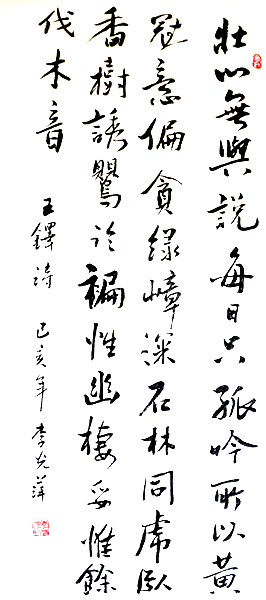 壯心無與説每日只孤吟所以黃
冠意偏貪綠嶂深石林同虎臥
香樹誘鸎褊性幽棲妥惟餘
伐木音
王鐸詩 己亥年 李光萍